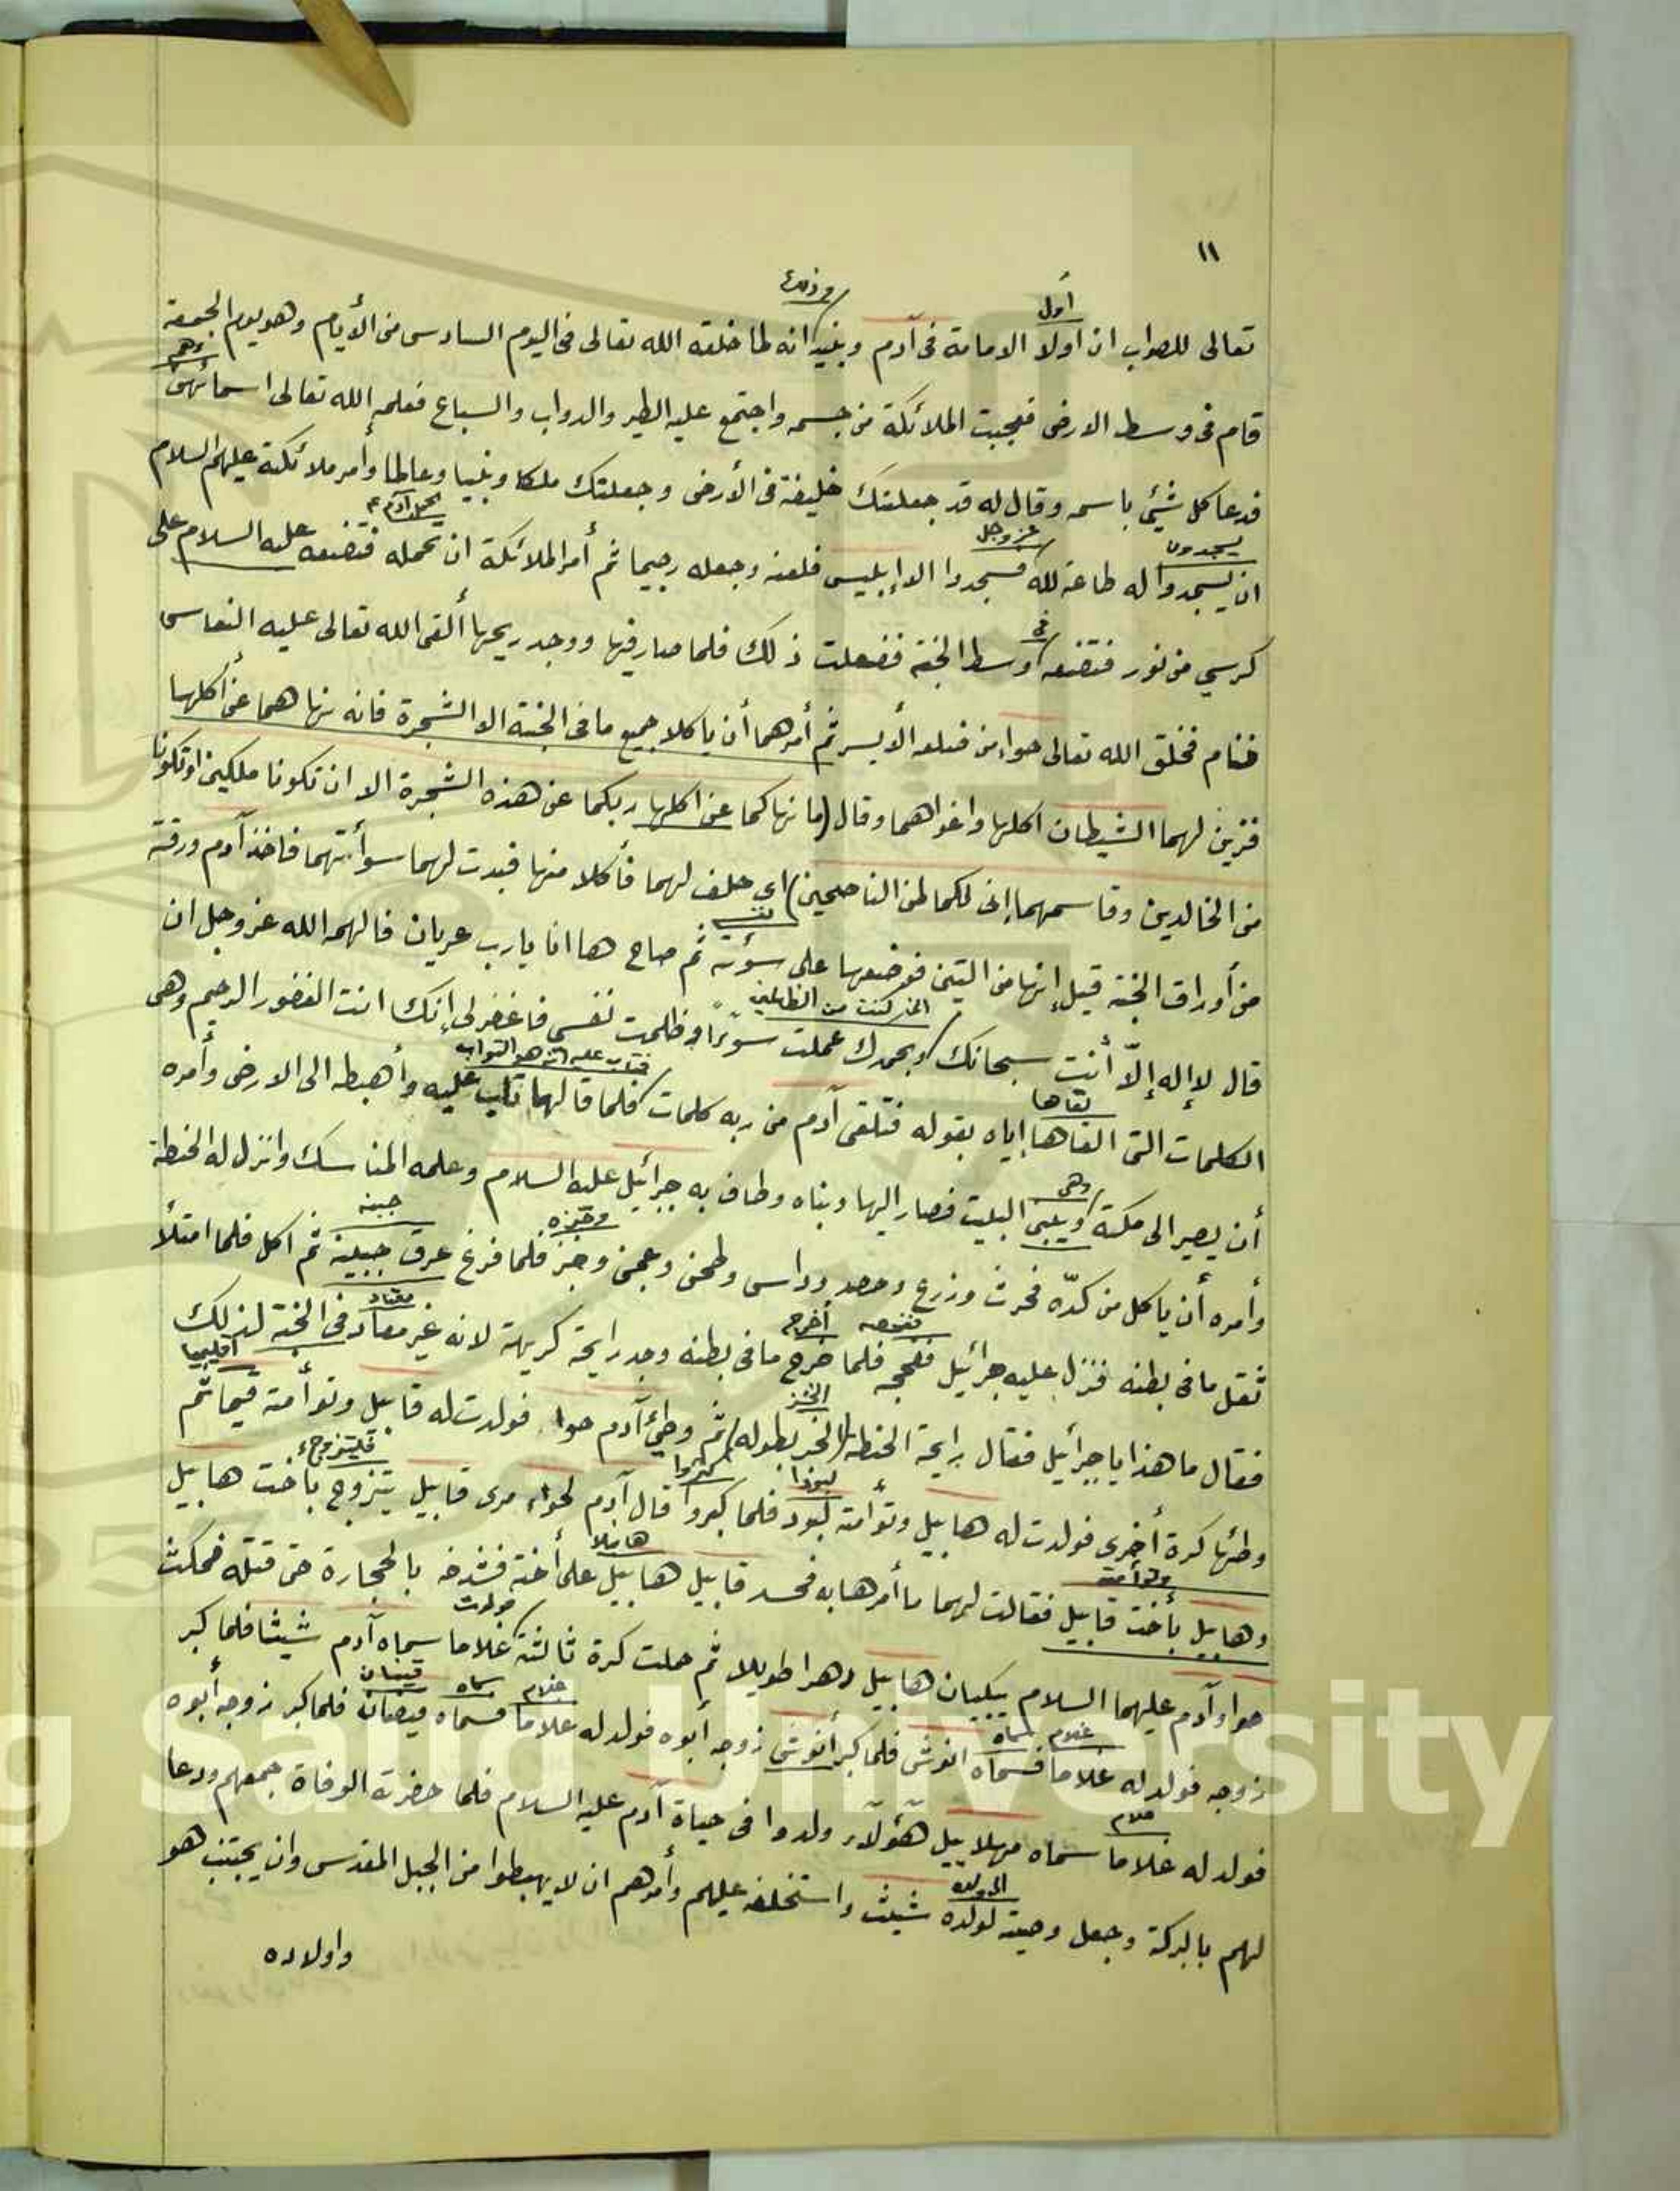 ١١
أول
وذلك
تعالى للصواب ان أولا الامامة فى آدم وبنيه انه لما خلقه الله تعالى فى اليوم السادس من الأيام وهو يوم الجمعة
قام فى وسط الارض فعجبت الملائكة من جسمه واجتمع عليه الطير والدواب والسباع فعلمه الله تعالى اسمائهن
فدعا كل شئ باسمه وقال له قد جعلتك خليفة فى الأرض وجعلتك ملكا ونبيا وعالما وأمر ملائكته عليهم السلام
يسجدون
عز وجل
تحمل آدم ع
ان يسجدوا له طاعة لله فسجدوا الا إبليس فلعنه وجعله رجيما ثم أمر الملائكة ان تحمله فتضعه عليه السلام على
فى
كرسي من نور فتضعه وسط الجنة ففعلت ذلك فلما صار فيها ووجد ريحها ألقى الله تعالى عليه النعاس
فنام فخلق الله تعالى حواء من ضلعه الأيسر ثم أمرهما أن ياكلا جميع ما فى الجنة الا الشجرة فانه نهاهما عن أكلها
فزين لهما الشيطان اكلها واغواهما وقال (ما نهاكما عن اكلها ربكما عن هذه الشجرة الا ان تكونا ملكين اوتكونا
من الخالدين وقاسمهما إنى لكما لمن الناصحين) اي حلف لهما فأكلا منها فبدت لهما سوأتهما فاخذ آدم ورقة
من أوراق الجنة قيل إنها من التين فوضعها على سوئته ثم صاح ها انا يارب عريان فالهمه الله عز وجل ان
انى كنت من الظالمين
قال لا إله إلا أنت سبحانك وبحمدك عملت سوءًا وظلمت نفسى فاغفر لى إنك انت الغفور الرحيم وهى
لقاها
فتاب عليه انه هو التواب
الكلمات التى القاها إياه بقوله فتلقى آدم من ربه كلمات فلما قالها تاب عليه وأهبطه الى الارض وأمره
وهى
أن يصير الى مكة ويبنى البيت فصار اليها وبناه وطاف به جبرائيل عليه السلام وعلمه المناسك وانزل له الحنطة
وخبزه
جبينه
وأمره أن ياكل من كدّه فحرث وزرع وحصد وداس وطحن وعجن وخبز فلما فرغ عرق جبينه ثم اكل فلما امتلأ
أخرج
معتاد
ثقل ما فى بطنه فنزل عليه جبرائيل ففحجه فلما خرج ما فى بطنه وجد رايحة كريهة لانه غير معتاد فى الجنة لذلك
اقليميا
فقال ما هذا يا جبرائيل فقال رايحة الحنطة (الخبر بطوله) ثم وطئ آدم حواء فولدت له قابيل وتوأمته قيما ثم
لبوذا
كبروا
فليتزوج
وطئها كرة أخرى فولدت له هابيل وتوأمته لبود فلما كبروا قال آدم لحواء مرى قابيل يتزوج بأخت هابيل
وتوأمته
هابيلا
وهابيل بأخت قابيل فقالت لهما ما أمرها به فحسد قابيل هابيل على أخته فشدخه بالحجارة حتى قتله فمكث
فولدت
حوا وآدم عليهما السلام يبكيان هابيل دهرا طويلا ثم حملت كرة ثالثة غلاما سماه آدم شيثا فلما كبر
غلام
سماه
غلام
سماه
قينان
زوجه فولد له غلاما فسماه انوش فلما كبر أنوش زوجه أبوه فولد له غلاما فسماه قينان فلما كبر زوجه أبوه
غلام
فولد له غلاما سماه مهلابيل هؤلاء ولدوا فى حياة آدم عليه السلام فلما حضرته الوفاة جمعهم ودعا
الى ولده
لهم بالبركة وجعل وصيته لولده شيث واستخلفه عليهم وأمرهم ان لا يهبطوا من الجبل المقدس وان يجتنب هو
واولاده
King Saud University